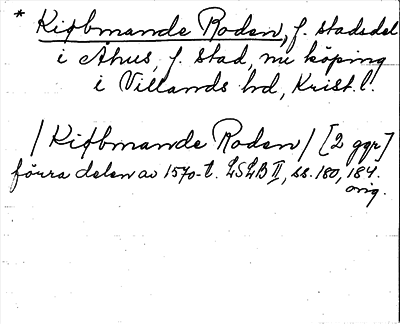 * Kiøbmande Roden, f. stadsdel
i Åhus, f. stad, nu köping
i Villands hd, Krist. l.
/Kiøbmande Roden/ [2 ggr]
förra delen av 1570-t. LSLB II, ss. 180, 184.
orig.